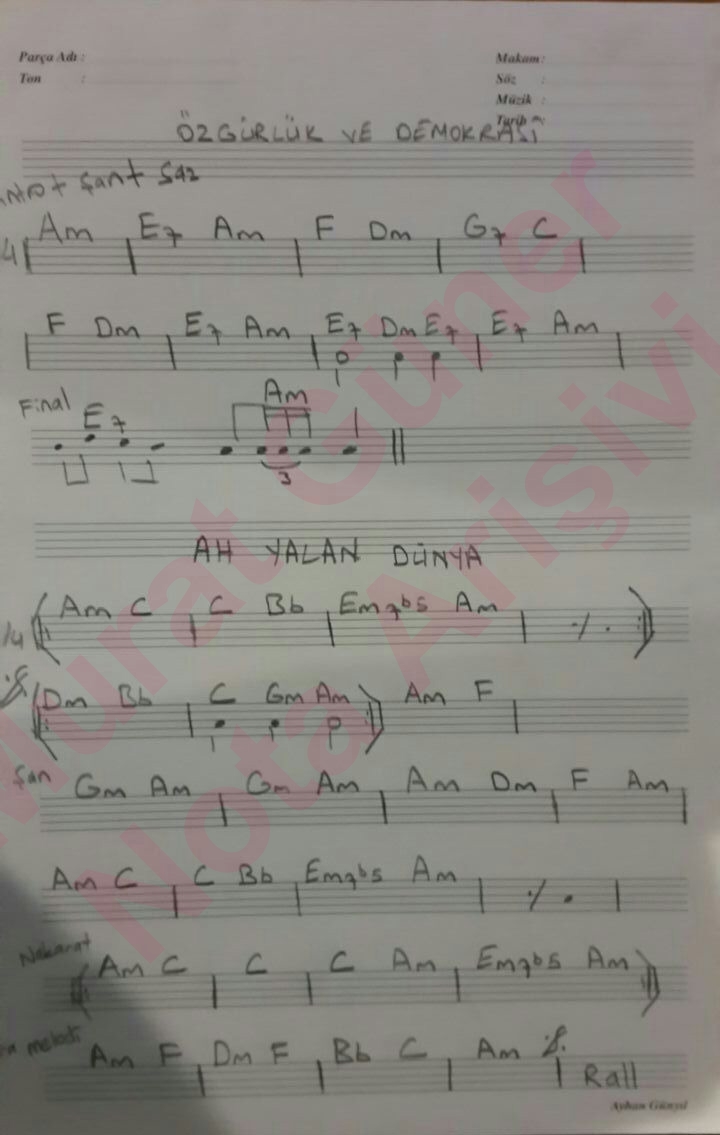 Parça Adı :
Makam:
Ton :
Söz :
Müzik :
Tarih :
ÖZGÜRLÜK VE DEMOKRASİ
şant saz
4 Am E7 Am F Dm G7 C
F Dm E7 Am E7 Dm E7 E7 Am
Final E7 Am
3
AH YALAN DÜNYA
/4 Am C C Bb Em7b5 Am ٪
Dm Bb C Gm Am Am F
Şan Gm Am Gm Am Am Dm F Am
Am C C Bb Em7b5 Am ٪
Nakarat Am C C C Am Em7b5 Am
melodi Am F Dm F Bb C Am Rall
Ayhan Günyıl
Murat Güner
Nota Arişivi